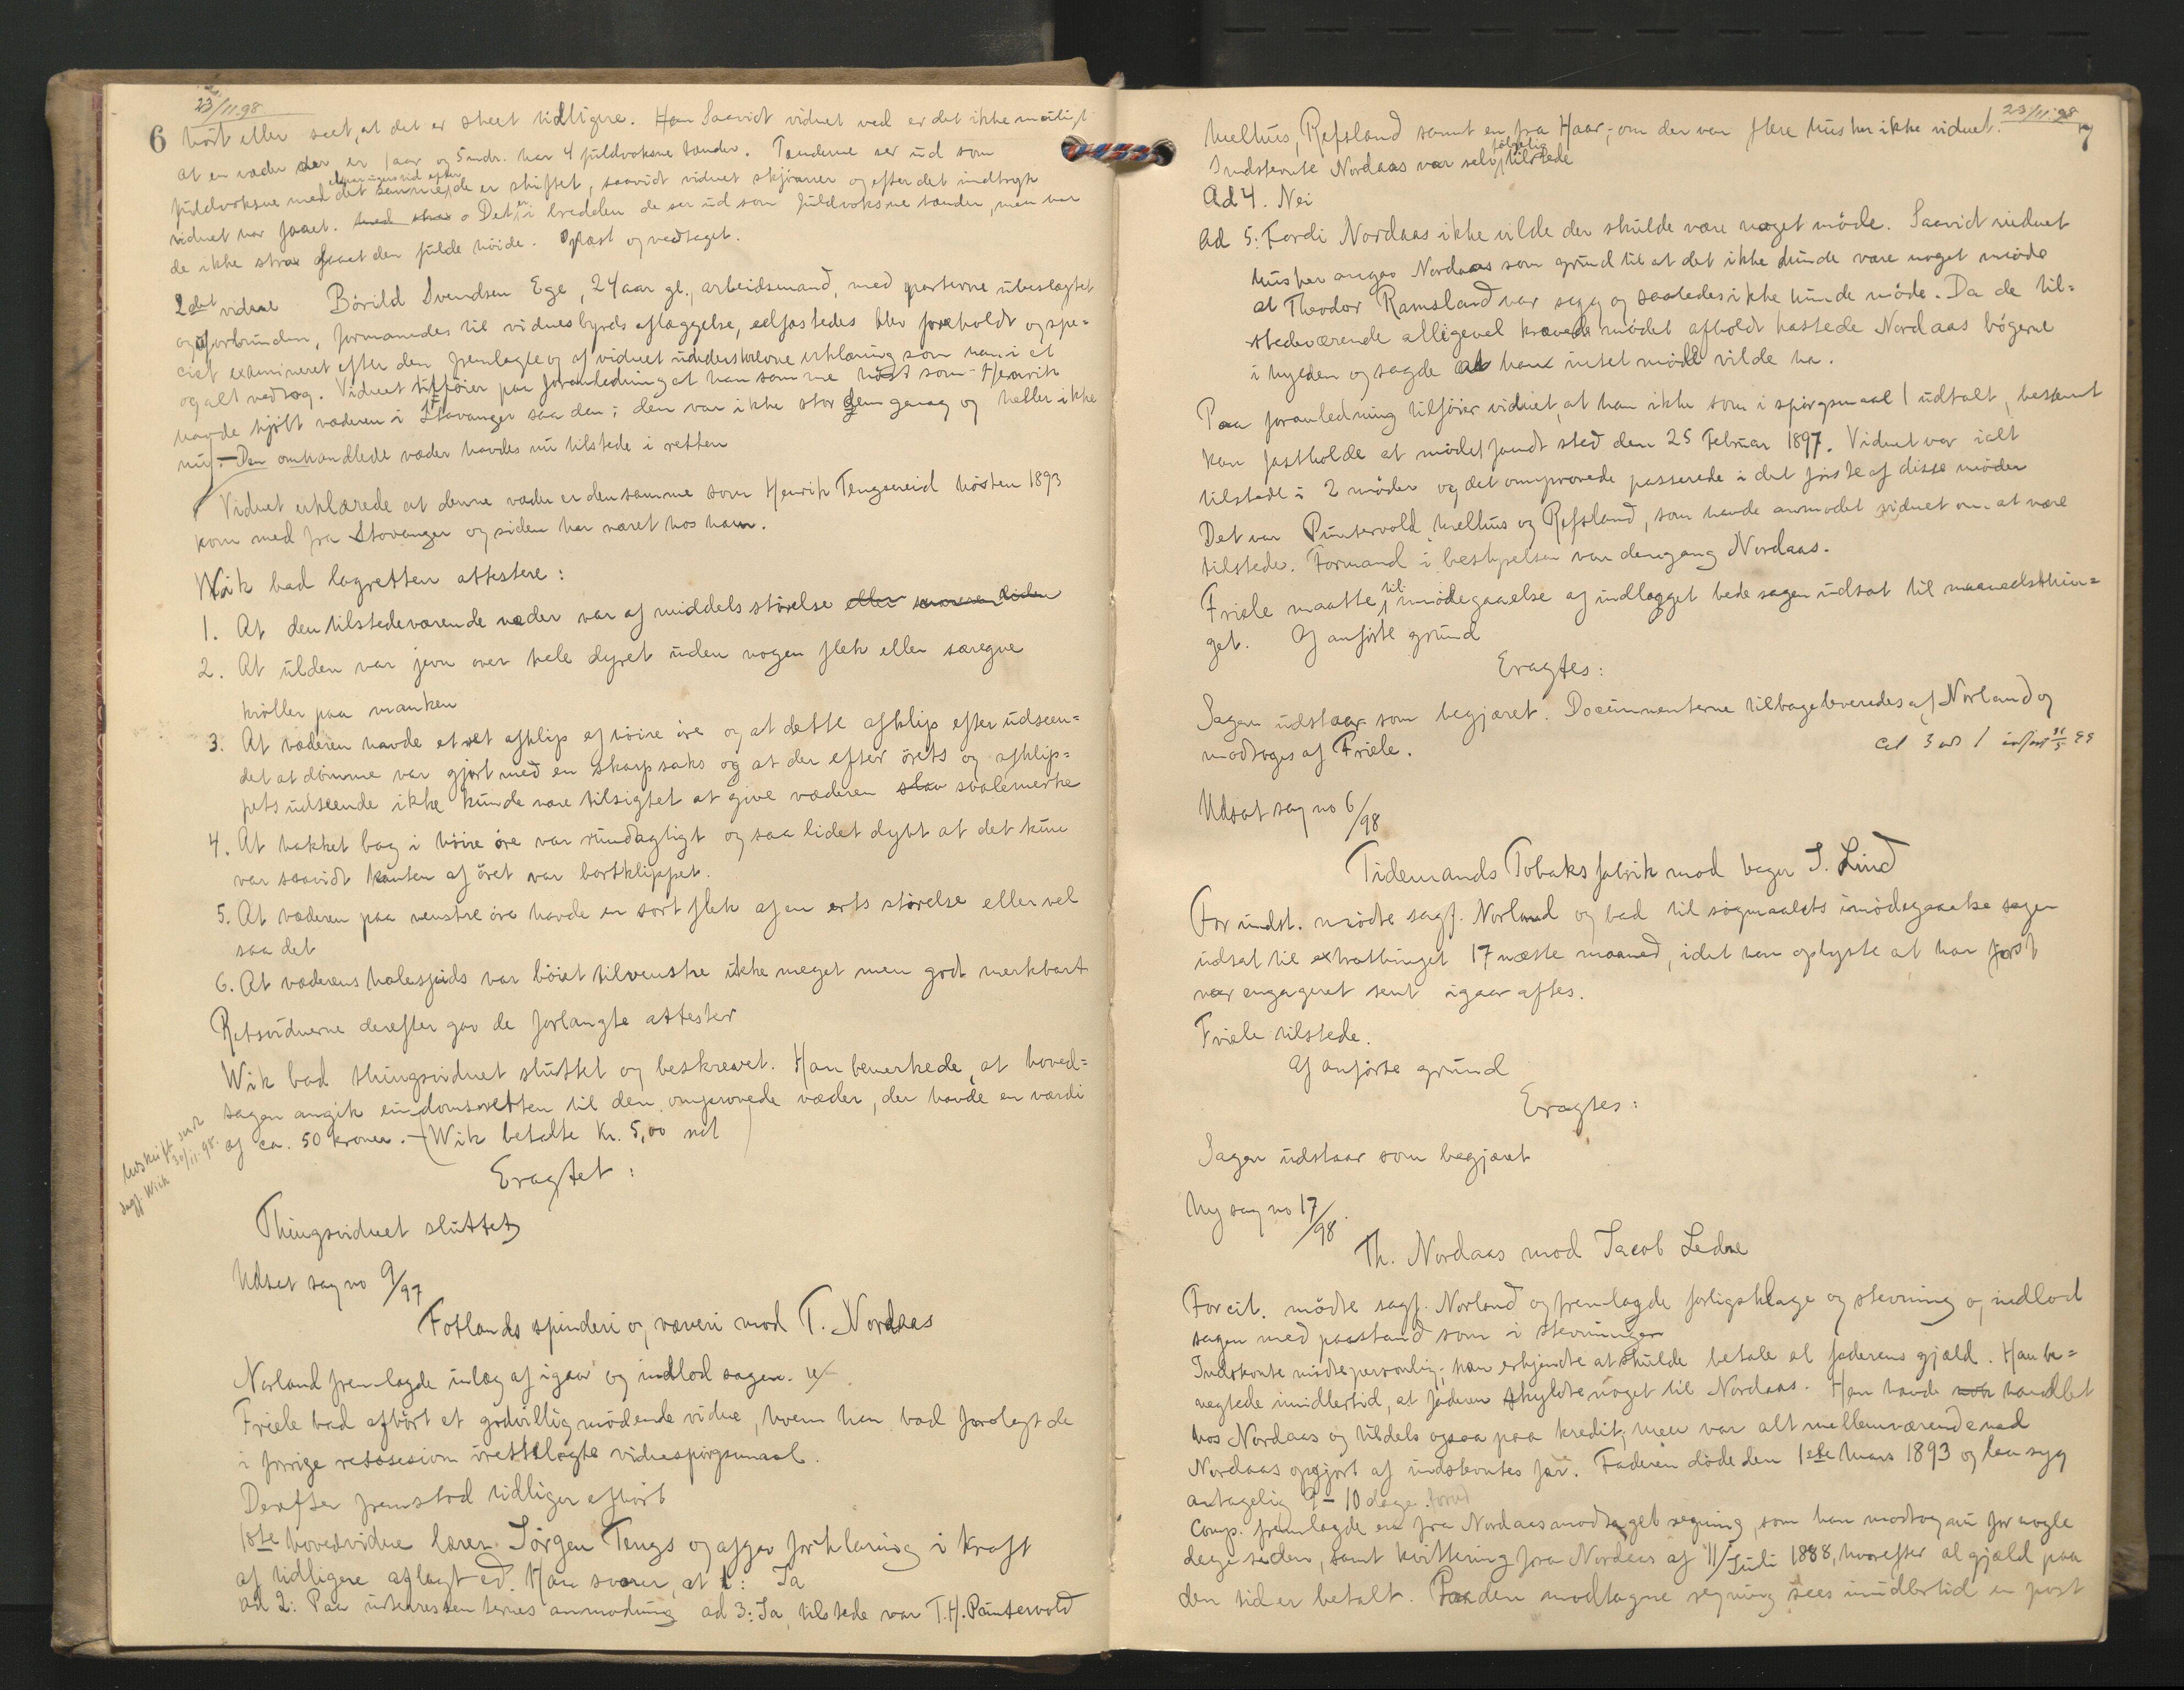 23/11.98
6 hört eller seet, at det er skeet tidligere. Saavidt vidnet ved er det ikke muligt
at en væder der er 1 aar og 5 mdr. har 4 fuldvoksne tænder. Tænderne ser ud som
fuldvoksne med det samme de er skiftet, saavidt vidnet skjönner og efter det indtryk
vidnet har faaet. Det er i bredden de ser ud som fuldvoksne tænder, men har
de ikke strax faaet den fulde höide. Oplæst og vedtaget.
2det vidne Börild Svendsen Ege, 24 aar gl., arbeidsmand, med parterne ubeslægtet
og uforbunden, formanedes til vidnesbyrds aflæggelse, edfæstedes blev foreholdt og spe=
cielt examineret efter den fremlagte og af vidnet underskrevne erklæring som han i et
og alt vedtog. Vidnet tilföier paa foranledning at han samme höst som Henrik
havde kjöbt væderen i Stavanger saa den; den var ikke stor dengang og heller ikke
nu. – Den omhandlede væder havdes nu tilstede i retten
Vidnet erklærede at denne væder er den samme som Henrik Tengsereid hösten 1893
kom med fra Stavanger og siden har været hos ham.
Wik bad lagretten attestere:
1. At den tilstedeværende væder var af middels störelse eller
2. At ulden var jevn over hele dyret uden nogen flek eller særegne
kröller paa manken
3. At væderen havde et ret afklip af höire öre og at dette afklip efter udseen=
det at dömme var gjort med en skarp saks og at der efter örets og afklip=
pets udseende ikke kunde være tilsigtet at give væderen svalemerke
4. At hakket bag i höire öre var rundagtigt og saa lidet dybt at det kun
var saavidt kanten af öret var bortklippet.
5. At væderen paa venstre öre havde en sort flek af en erts störelse eller vel
saa det
6. At væderens halespids var böiet til venstre ikke meget men godt merkbart
Retsvidnerne derefter gav de forlangte attester
Wik bad thingsvidnet sluttet og beskrevet. Han bemerkede, at hoved=
sagen angik eiendomsretten til den omprovede væder, der havde en værdi
af ca. 50 kroner. – (Wik betalte Kr. 5,00 
Udskrift
sagf. Wiik 30/11.98.
Eragtet:
Thingsvidnet sluttet
Udsat sag no 9/97
Fotlands spinderi og væveri mod T. Nordaas
Norland fremlagde inlæg af igaar og indlod sagen.
Friele bad afhört et godvillig mödende vidne, hvem han bad forelagt de
i forrige retssesion iretttelagte vidnespörgsmaal.
Derefter fremstod tidligere afhört
1ste hovedvidne lærer Jörgen Tengs og afgav forklaring i kraft
af tidligere aflagt ed. Han svarer, at 1: Ja
ad 2: Paa interessenternes anmodning ad 3: Ja, tilstede var T.H. Puntervold
23/11.98
7
Melhus, Refsland samt en fra Haar; om der var flere husker ikke vidnet.
Indstevnte Nordaas var selvfölgelig tilstede
Ad 4. Nei
Ad 5: Fordi Nordaas ikke vilde der skulde være noget möde. Saavidt vidnet
husker angav Nordaas som grund til at det ikke kunde være noget möde
at Theodor Ramsland var syg og saaledes ikke kunde möde. Da de til=
stedeværende alligevel krævede mödet afholdt kastede Nordaas bögerne
i hylden og sagde at han intet möde vilde ha.
Paa foranledning tilföier vidnet, at han ikke som i spörgsmaal 1 udtalt, bestemt
kan fastholde at mödet fandt sted den 25 Februar 1897. Vidnet var ialt
tilstede i 2 möder og det omprovede passerede i det förste af disse möder
Det var Puntervold, Melhus og Refsland, som havde anmodet vidnet om at være
tilstede. Formand i bestyrelsen var dengang Nordaas.
Friele maatte til imödegaaelse af indlægget bede sagen udsat til maanedsthin=
get. Af anförte grund
Eragtes:
Sagen udstaar som begjæret. Documenterne tilbageleveredes af Norland og
modtoges af Friele.
Udsat sag no 6/98
Tidemands Tobaksfabrik mod bager I. Lind
For indst. mödte sagf. Norland og bad til sögmaalets imödegaaelse sagen
udsat til extrathinget 17 næste maaned, idet han oplyste at han först
var engageret sent igaar aftes.
Friele tilstede.
Af anförte grund
Eragtes:
Sagen udstaar som begjæret
Ny sag no 17/98.
Th. Nordaas mod Jacob Ledne
For cit. mödte sagf. Norland og fremlagde forligsklage og stevning og indlod
sagen med paastand som i stevningen
Indstevnte mödte personlig; han erkjendte at skulde betale al faderens gjæld. Han be=
negtede imidlertid, at faderen skyldte noget til Nordaas. Han havde handlet
hos Nordaas og tildels ogsaa paa kredit, men var alt mellemværende med
Nordaas opgjort af indstevntes far. Faderen döde den 1ste Mars 1893 og laa syg
antagelig 9–10 dage. forud
Comp. fremlagde en fra Nordaas modtaget regning, som han modtog nu for nogle
dage siden, samt kvittering fra Nordaas af 11/Juli 1888, hvorefter al gjæld paa
den tid er betalt. Paa den modtagne regning sees imidlertid en post